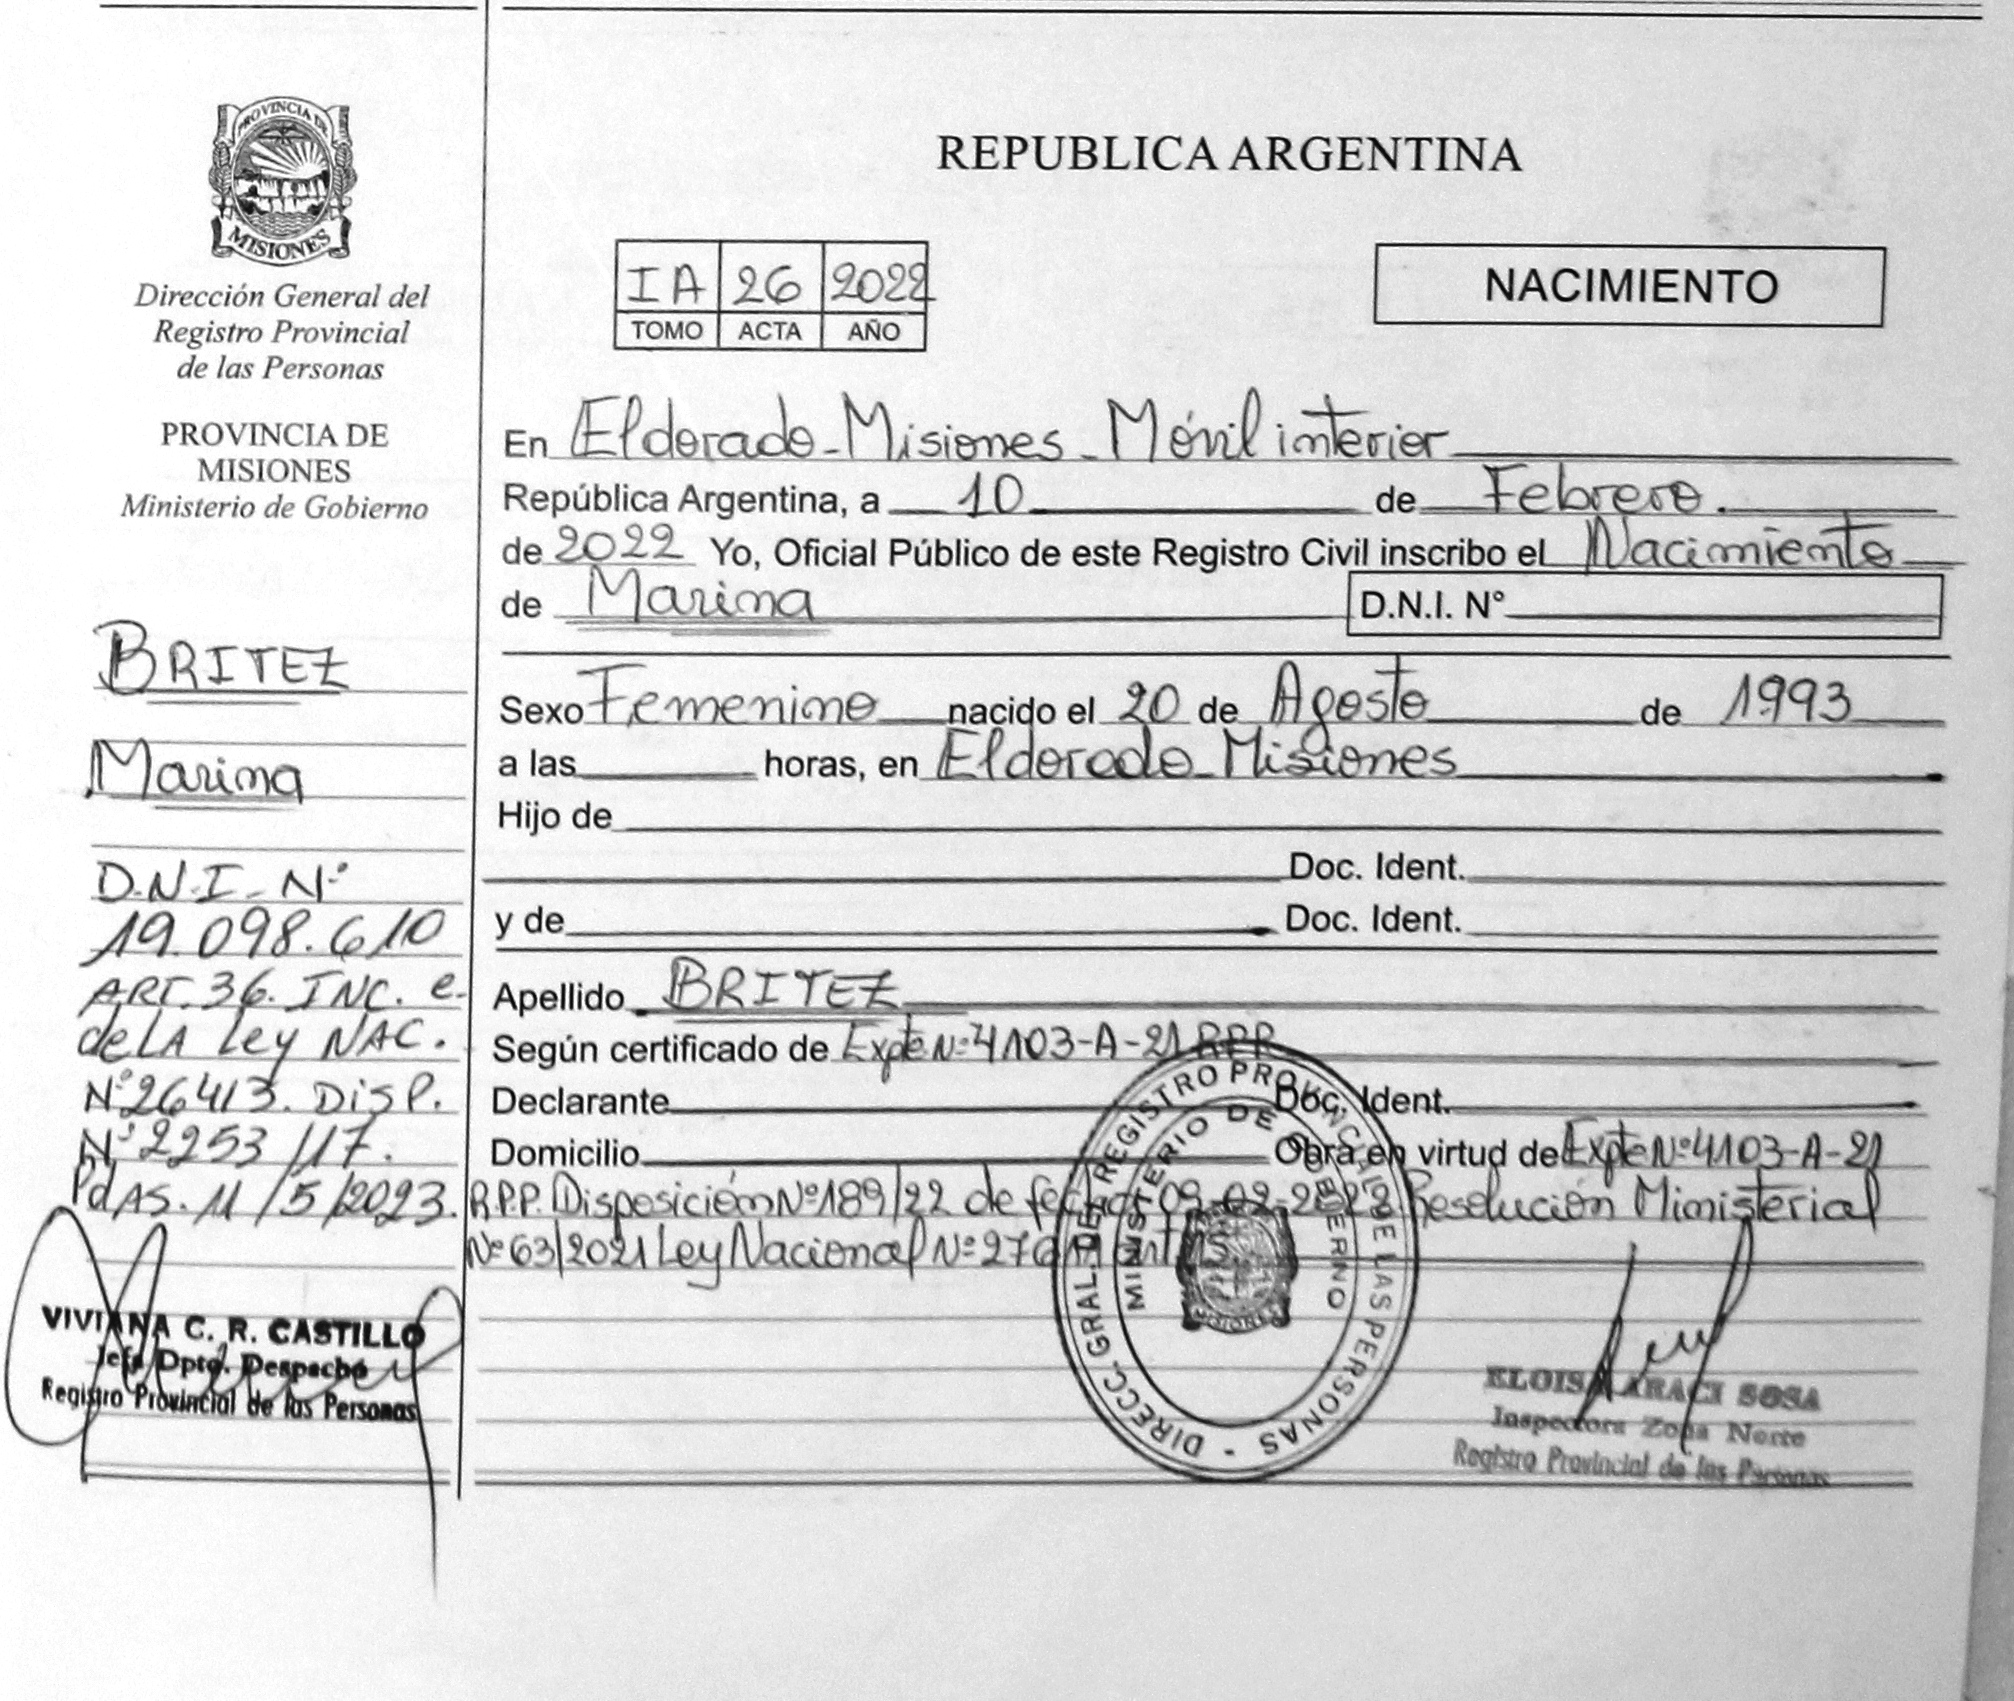 PROVINCIA DE
MISIONES
Dirección General del
Registro Provincial
de las Personas
PROVINCIA DE
MISIONES
Ministerio de Gobierno
BRITEZ
Marina
D.N.I. Nº
19.098.610
ART. 36. INC. e-
de LA Ley NAC.
Nº 26413. DISP.
Nº 2253/17.
PdAS. 11/5/2023.
VIVIANA C. R. CASTILLO
Jefa Dpto. Despacho
Registro Provincial de las Personas
REPUBLICA ARGENTINA
IA 26 2022
TOMO ACTA AÑO
NACIMIENTO
En Eldorado-Misiones-Móvil interior
República Argentina, a 10 de Febrero.
de 2022 Yo, Oficial Público de este Registro Civil inscribo el Nacimiento
de Marina D.N.I. N°
Sexo Femenino nacido el 20 de Agosto de 1993
a las horas, en Eldorado-Misiones
Hijo de
Doc. Ident.
y de Doc. Ident.
Apellido BRITEZ
Según certificado de Expte Nº 4103-A-21 RPP
Declarante Doc. Ident.
Domicilio Obra en virtud de Expte Nº 4103-A-21
R.P.P. Disposición Nº 189/22 de fecha 09-02-2022 Resolución Ministerial
Nº 63/2021 Ley Nacional Nº
DIRECC. GRAL. DEL REGISTRO PROVINCIAL DE LAS PERSONAS -
MINISTERIO DE GOBIERNO
MISIONES
ELOISA ARACI SOSA
Inspectora Zona Norte
Registro Provincial de las Personas